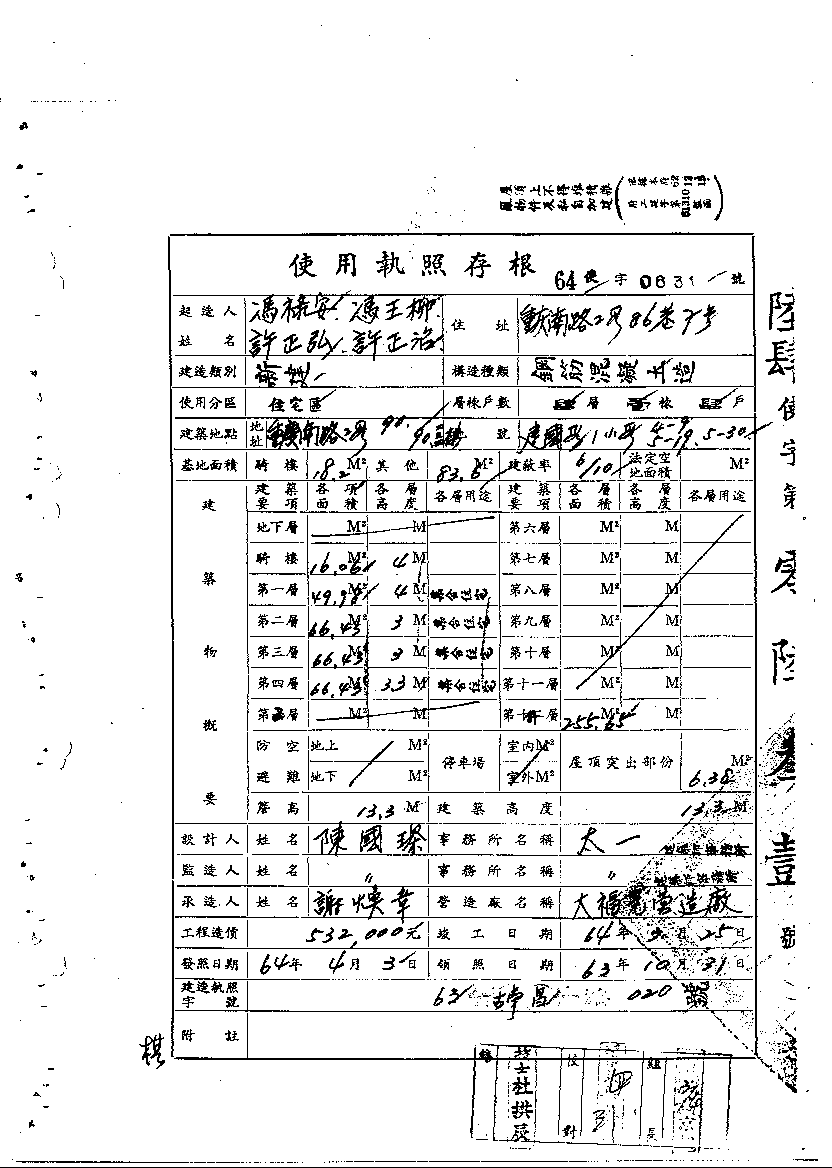 屋頂上不得堆積雜
使用執照存根
64使字0631號
起造人姓名 馮祿安 馮王柳 許正弘 許正治 住址 重慶南路2段86巷7號
建造類別 新建 構造種類 鋼筋混凝土造
使用分區 住宅區 層棟戶數 層 棟 戶
建築地點 地址 重慶南路2段 90. 號 建國段1小段 5-19. 5-30
基地面積 騎樓 18.2 M² 其他 83.6 M² 建蔽率 6/10 法定空地面積 M²
建築物概要 建築要項 各項面積 各層高度 各層用途 建築要項 各層面積 各層高度 各層用途
地下層 M² M 第六層 M² M
騎樓 16.06 M² 4 M 第七層 M² M
第一層 49.98 M² 4 M 集合住宅 第八層 M² M
第二層 66.43 M² 3 M 集合住宅 第九層 M² M
第三層 66.43 M² 3 M 集合住宅 第十層 M² M
第四層 66.43 M² 3.3 M 集合住宅 第十一層 M² M
第 層 M² M 第 層 255.65 M² M
防空避難 地上 M² 地下 M² 停車場 室內 M² 室外 M² 屋頂突出部份 6.38 M²
簷高 13.3 M 建築高度 13.3 M
設計人 姓名 陳國璨 事務所名稱 太一
監造人 姓名 〃 事務所名稱 〃
承造人 姓名 謝煥章 營造廠名稱 大福 營造廠
工程造價 532,000元 竣工日期 64年3月25日
發照日期 64年4月3日 領照日期 63年10月31日
建造執照字號 63 020 號
附註
陸肆使字第零陸叁壹號
棋
技士杜拱辰
校對
組長